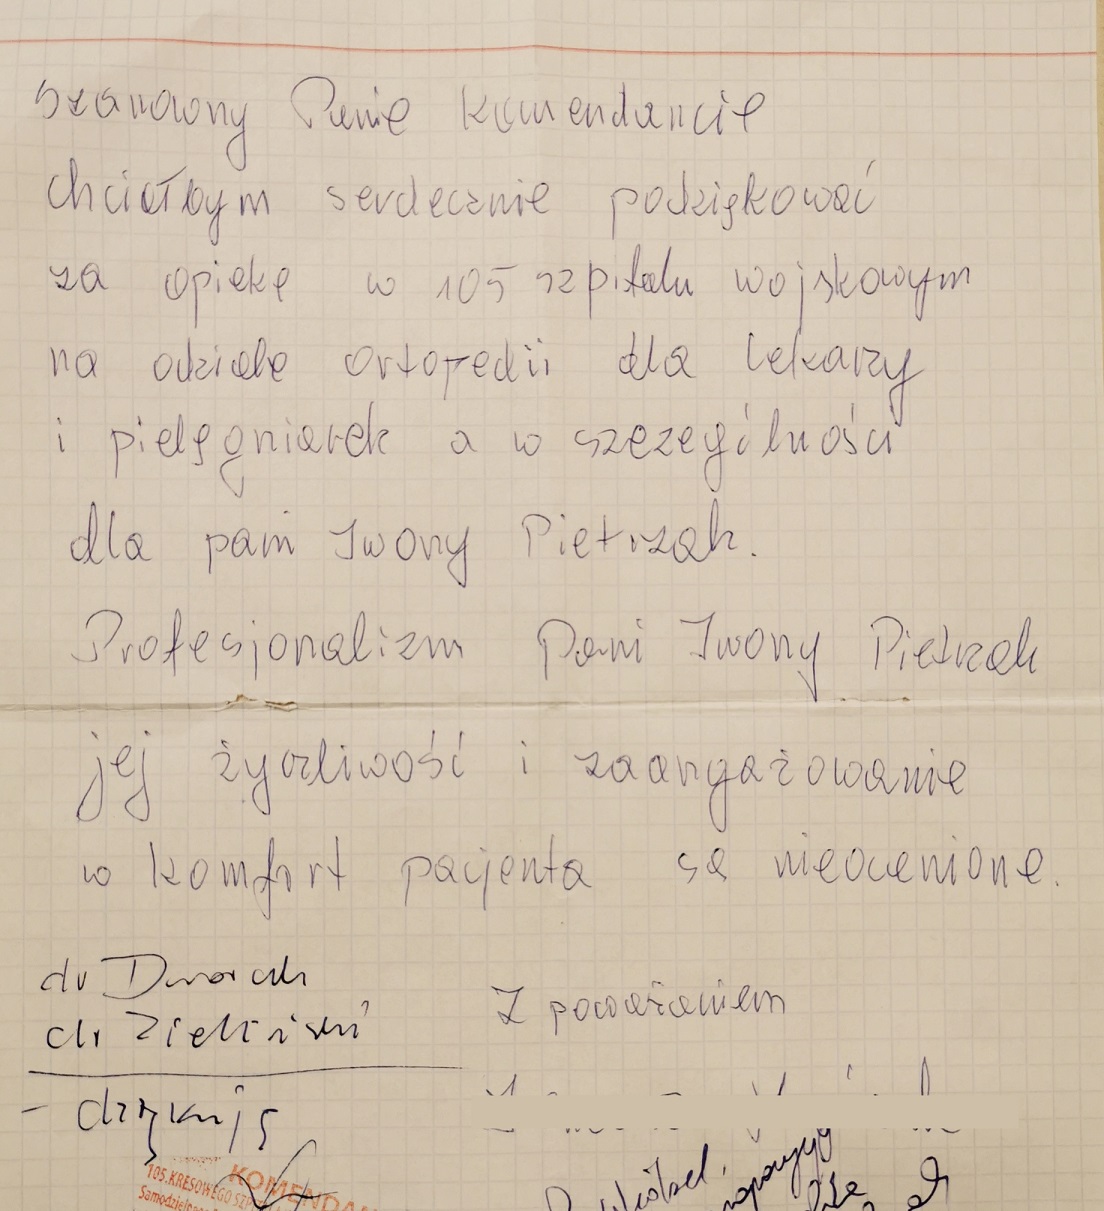 Szanowny Panie Komendancie
chciałbym serdecznie podziękować
za opiekę w 105 szpitalu wojskowym
na odziale ortopedii dla lekarzy
i pielęgniarek a w szczególności
dla pani Iwony Pietrzak.
Profesjonalizm Pani Iwony Pietrzak
jej życzliwość i zaangażowanie
w komfort pacjenta są nieocenione.
dr Dworak
dr Zieliński
Z poważaniem
- dziękuję
KOMENDAN
105. KRESOWEGO SZP